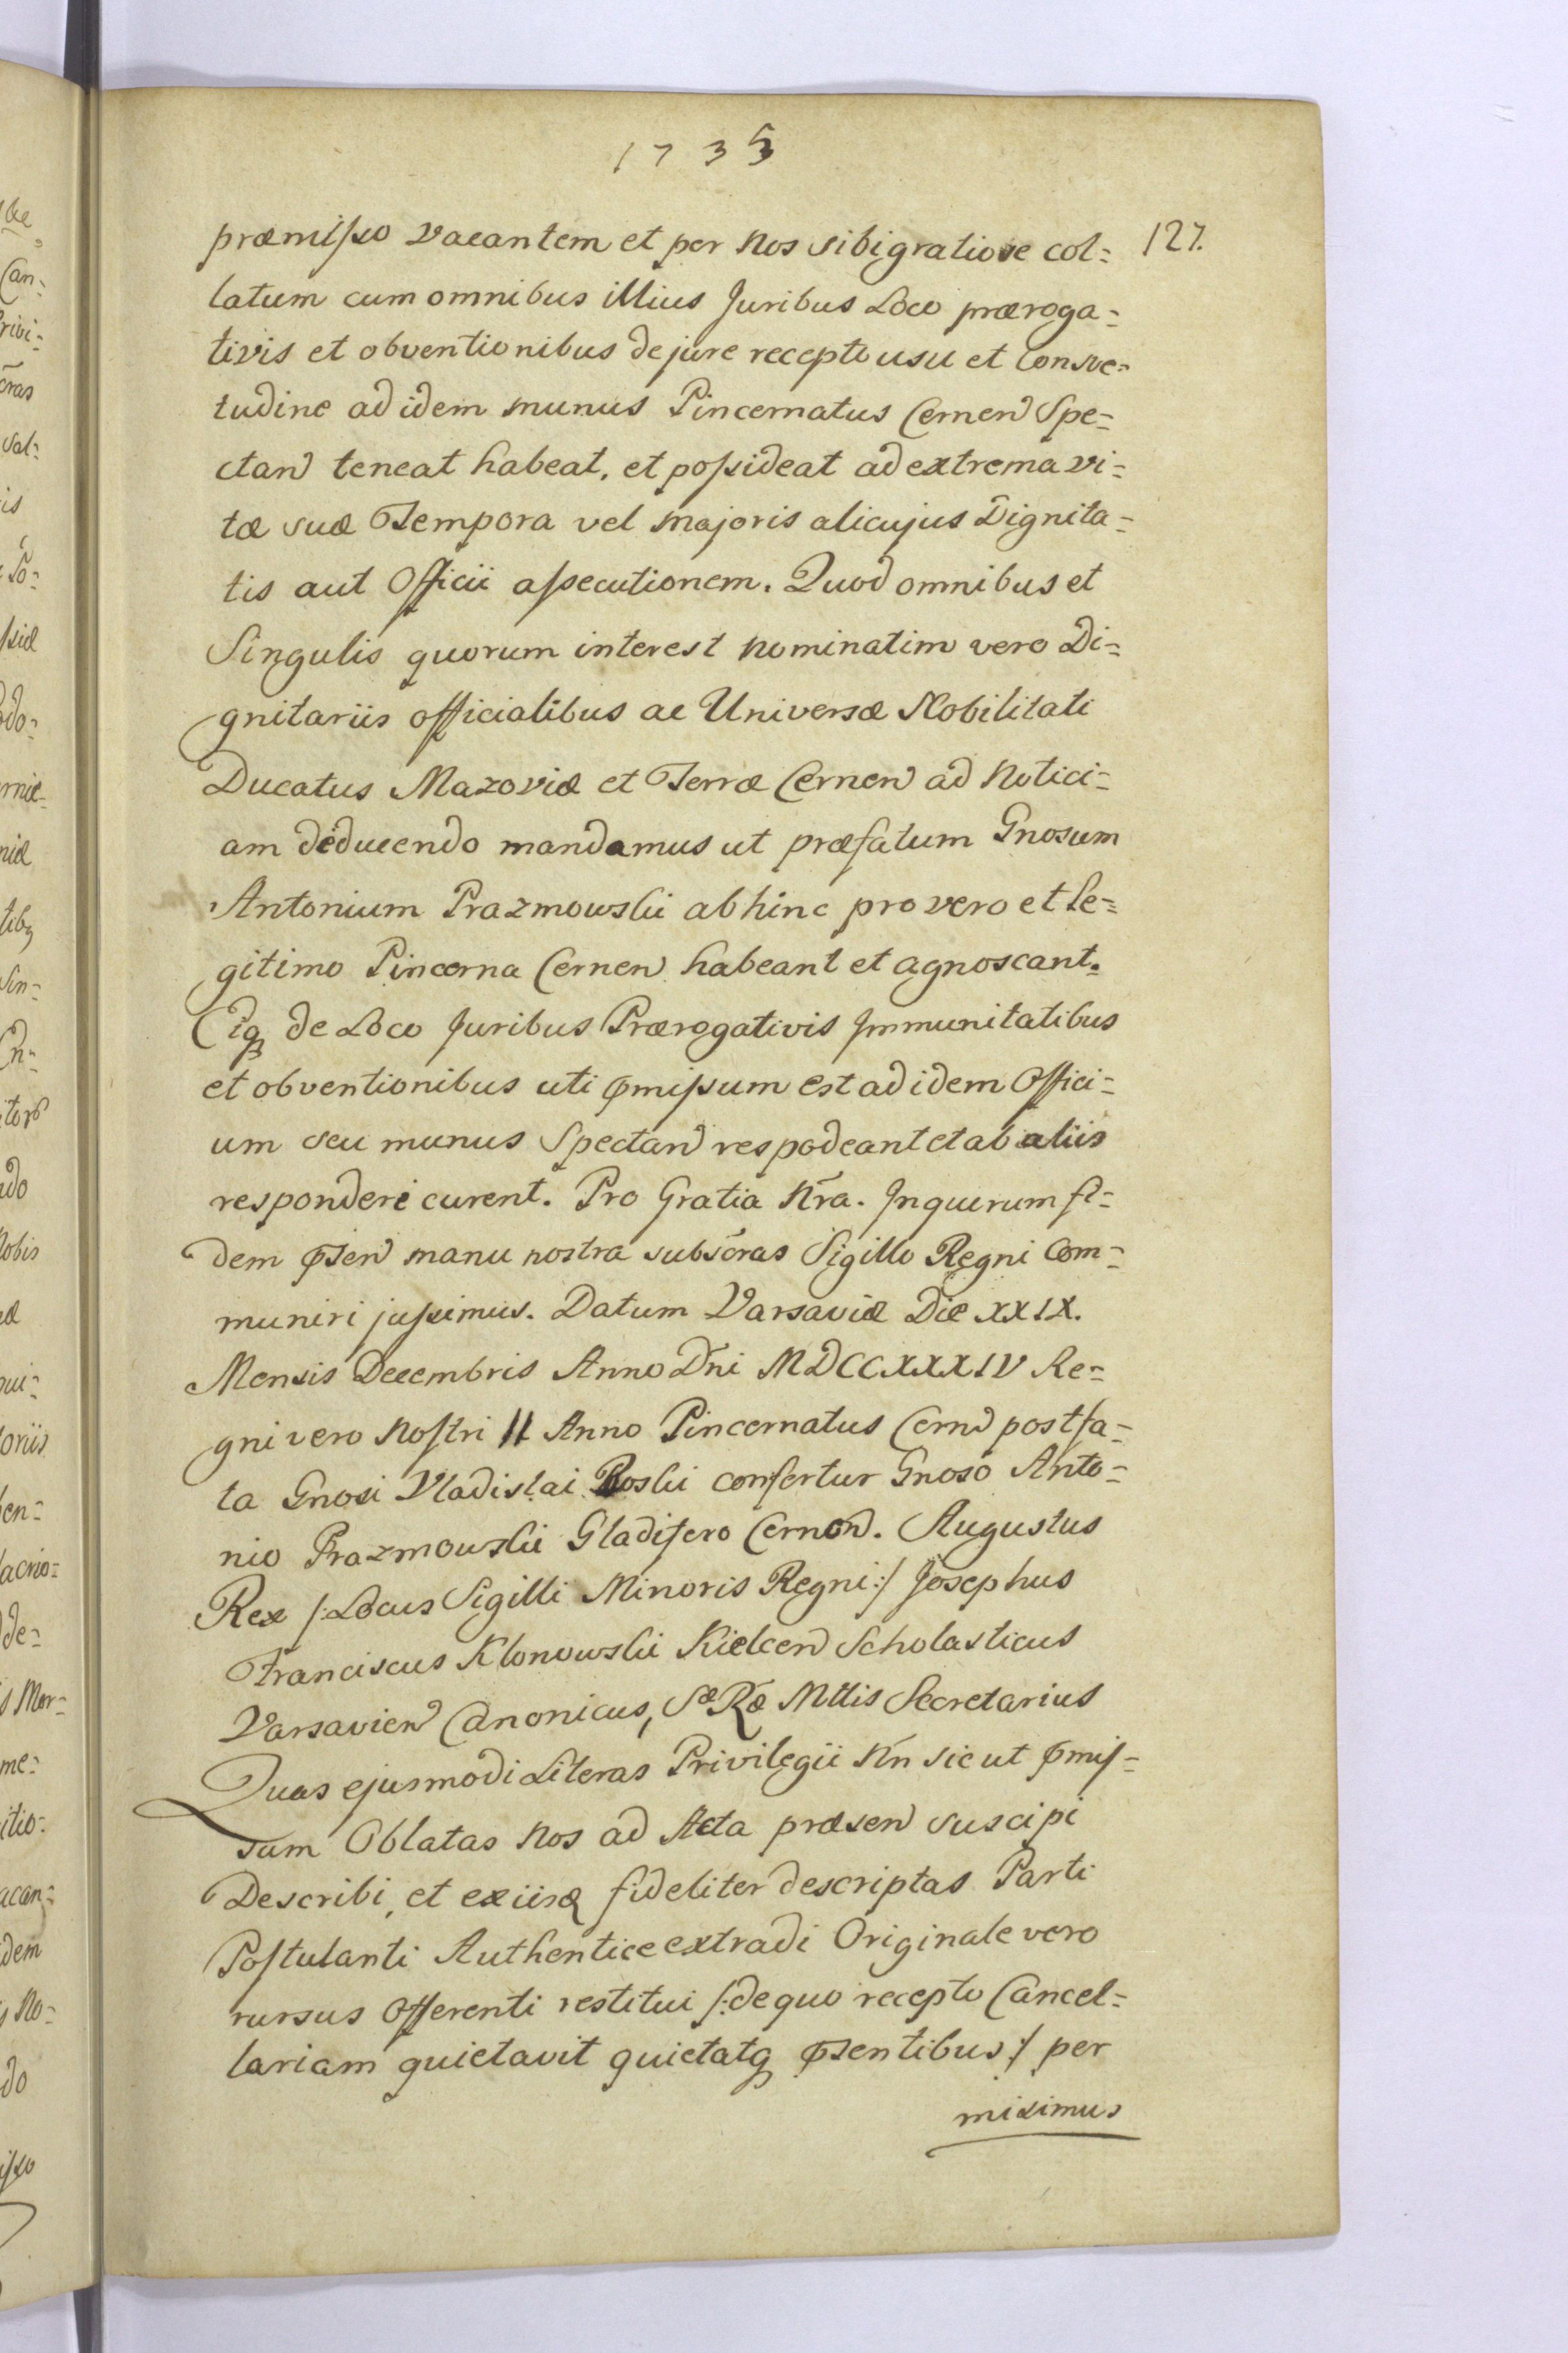 1735
127.
præmisso vacantem et per Nos sibi gratiose col=
latum cum omnibus illius Juribus Loco præroga=
tivis et obventionibus de jure recepto usu et Consve=
tudine ad idem munus Pincernatus Cernen Spe=
ctan teneat habeat, et possideat ad extrema vi=
tæ suæ Tempora vel majoris alicujus Dignita=
tis aut Officii assecutionem. Quod omnibus et
Singulis quorum interest nominatim vero Di=
gnitariis officialibus ac Universæ Nobilitati
Ducatus Mazoviæ et Terræ Cernen ad Notici=
am deducendo mandamus ut præfatum Gnosum
Antonium Prazmowski abhinc pro vero et le=
gitimo Pincerna Cernen habeant et agnoscant.
Eiq de Loco Juribus Prærogativis Immunitatibus
et obventionibus uti pmissum est ad idem Offici=
um seu munus Spectan respodeant et ab aliis
responderi curent. Pro Gratia Nra. In quorum fi=
dem psen manu nostra subscras Sigillo Regni Com=
muniri jussimus. Datum Varsaviæ Die XXIX.
Mensis Decembris Anno Dni MDCCXXXIV Re=
gni vero Nostri II Anno Pincernatus Cern post fa=
ta Gnosi Vladislai Roski confertur Gnoso Anto=
nio Prazmowski Gladifero Cernen. Augustus
Rex /:Locus Sigilli Minoris Regni:/ Josephus
Franciscus Klonowski Kielcen Scholasticus
Varsavien Canonicus, Sæ Ræ Mttis Secretarius
Quas ejusmodi Literas Privilegii Nn sic ut pmis=
sum Oblatas Nos ad Acta præsen suscipi
Describi, et ex iisq fideliter descriptas Parti
Postulanti Authentice extradi Originale vero
rursus Offerenti restitui /:de quo recepto Cancel=
lariam quietavit quietatq psentibus:/ per
misimus